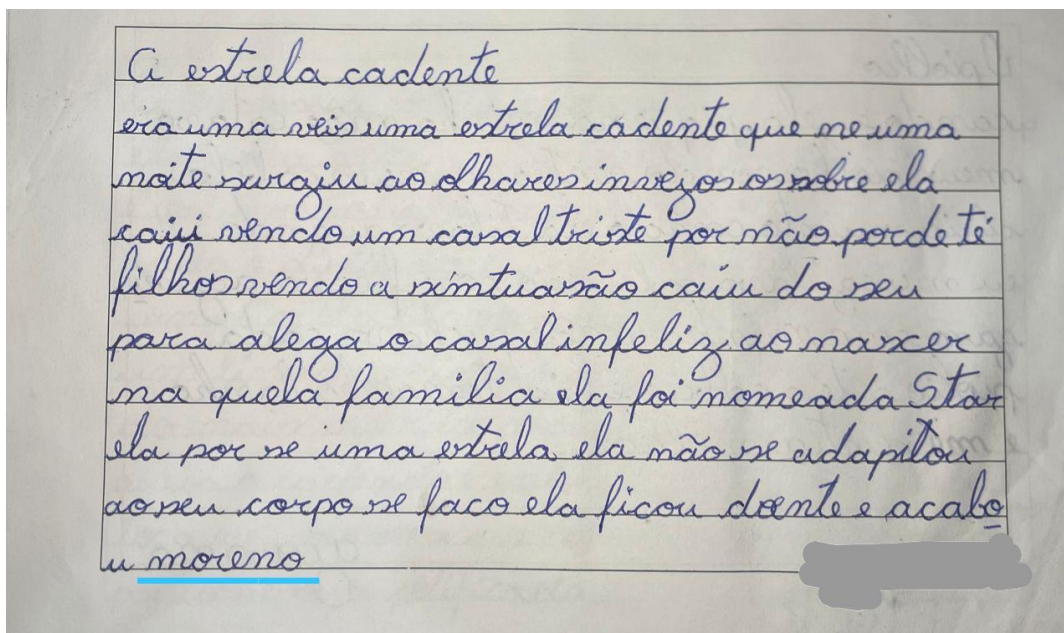 A estrela cadente
era uma veis uma estrela cadente que ne uma
noite surgiu ao olhares invezos os sobre ela
caiu vendo um casal triste por não porde té
filhos vendo a simtuasão caiu do seu
para alega o casal infeliz ao nascer
na quela familia ela foi nomeada Star
ela por se uma estrela ela não se adapitou
ao seu corpo se faco ela ficou doente e acabo
u moreno